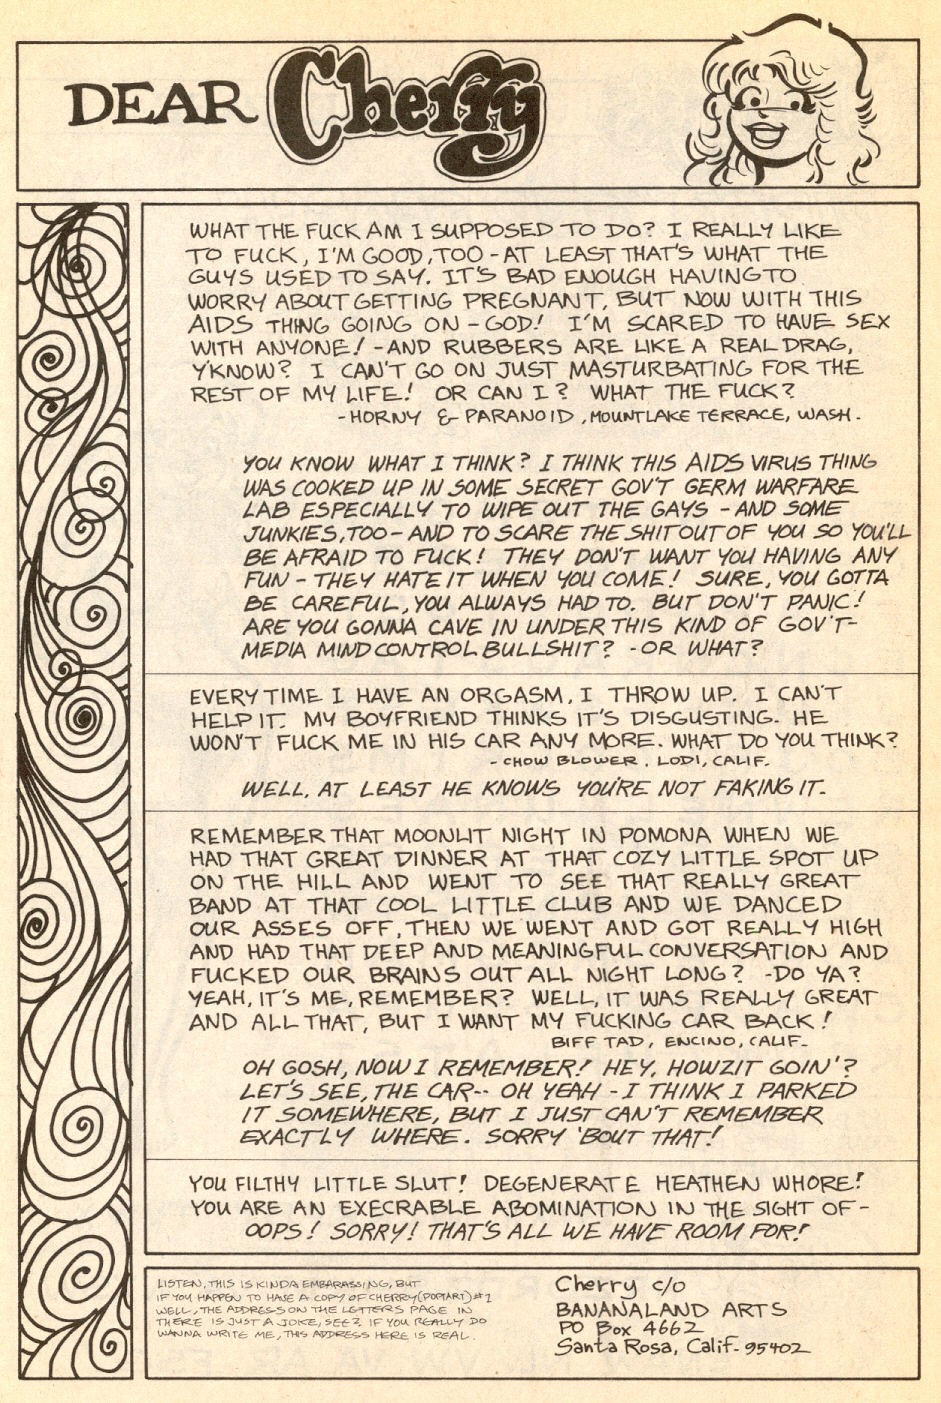 DEAR Cherry
WHAT THE FUCK AM I SUPPOSED TO DO? I REALLY LIKE
TO FUCK, I'M GOOD, TOO - AT LEAST THAT'S WHAT THE
GUYS USED TO SAY. IT'S BAD ENOUGH HAVING TO
WORRY ABOUT GETTING PREGNANT, BUT NOW WITH THIS
AIDS THING GOING ON - GOD! I'M SCARED TO HAVE SEX
WITH ANYONE! - AND RUBBERS ARE LIKE A REAL DRAG,
Y'KNOW? I CAN'T GO ON JUST MASTURBATING FOR THE
REST OF MY LIFE! OR CAN I? WHAT THE FUCK?
- HORNY & PARANOID, MOUNTLAKE TERRACE, WASH.
YOU KNOW WHAT I THINK? I THINK THIS AIDS VIRUS THING
WAS COOKED UP IN SOME SECRET GOV'T GERM WARFARE
LAB ESPECIALLY TO WIPE OUT THE GAYS - AND SOME
JUNKIES, TOO - AND TO SCARE THE SHIT OUT OF YOU SO YOU'LL
BE AFRAID TO FUCK! THEY DON'T WANT YOU HAVING ANY
FUN - THEY HATE IT WHEN YOU COME! SURE, YOU GOTTA
BE CAREFUL, YOU ALWAYS HAD TO. BUT DON'T PANIC!
ARE YOU GONNA CAVE IN UNDER THIS KIND OF GOV'T-
MEDIA MIND CONTROL BULLSHIT? - OR WHAT?
EVERY TIME I HAVE AN ORGASM, I THROW UP. I CAN'T
HELP IT. MY BOYFRIEND THINKS IT'S DISGUSTING. HE
WON'T FUCK ME IN HIS CAR ANY MORE. WHAT DO YOU THINK?
- CHOW BLOWER, LODI, CALIF.
WELL, AT LEAST HE KNOWS YOU'RE NOT FAKING IT.
REMEMBER THAT MOONLIT NIGHT IN POMONA WHEN WE
HAD THAT GREAT DINNER AT THAT COZY LITTLE SPOT UP
ON THE HILL AND WENT TO SEE THAT REALLY GREAT
BAND AT THAT COOL LITTLE CLUB AND WE DANCED
OUR ASSES OFF, THEN WE WENT AND GOT REALLY HIGH
AND HAD THAT DEEP AND MEANINGFUL CONVERSATION AND
FUCKED OUR BRAINS OUT ALL NIGHT LONG? - DO YA?
YEAH, IT'S ME, REMEMBER? WELL, IT WAS REALLY GREAT
AND ALL THAT, BUT I WANT MY FUCKING CAR BACK!
BIFF TAD, ENCINO, CALIF.
OH GOSH, NOW I REMEMBER! HEY, HOWZIT GOIN'?
LET'S SEE, THE CAR-- OH YEAH - I THINK I PARKED
IT SOMEWHERE, BUT I JUST CAN'T REMEMBER
EXACTLY WHERE. SORRY 'BOUT THAT!
YOU FILTHY LITTLE SLUT! DEGENERATE HEATHEN WHORE!
YOU ARE AN EXECRABLE ABOMINATION IN THE SIGHT OF -
OOPS! SORRY! THAT'S ALL WE HAVE ROOM FOR!
LISTEN, THIS IS KINDA EMBARASSING, BUT
IF YOU HAPPEN TO HAVE A COPY OF CHERRY (POPTART) #1
WELL, THE ADDRESS ON THE LETTERS PAGE IN
THERE IS JUST A JOKE, SEE? IF YOU REALLY DO
WANNA WRITE ME, THIS ADDRESS HERE IS REAL.
Cherry c/o
BANANALAND ARTS
PO Box 4662
Santa Rosa, Calif. 95402